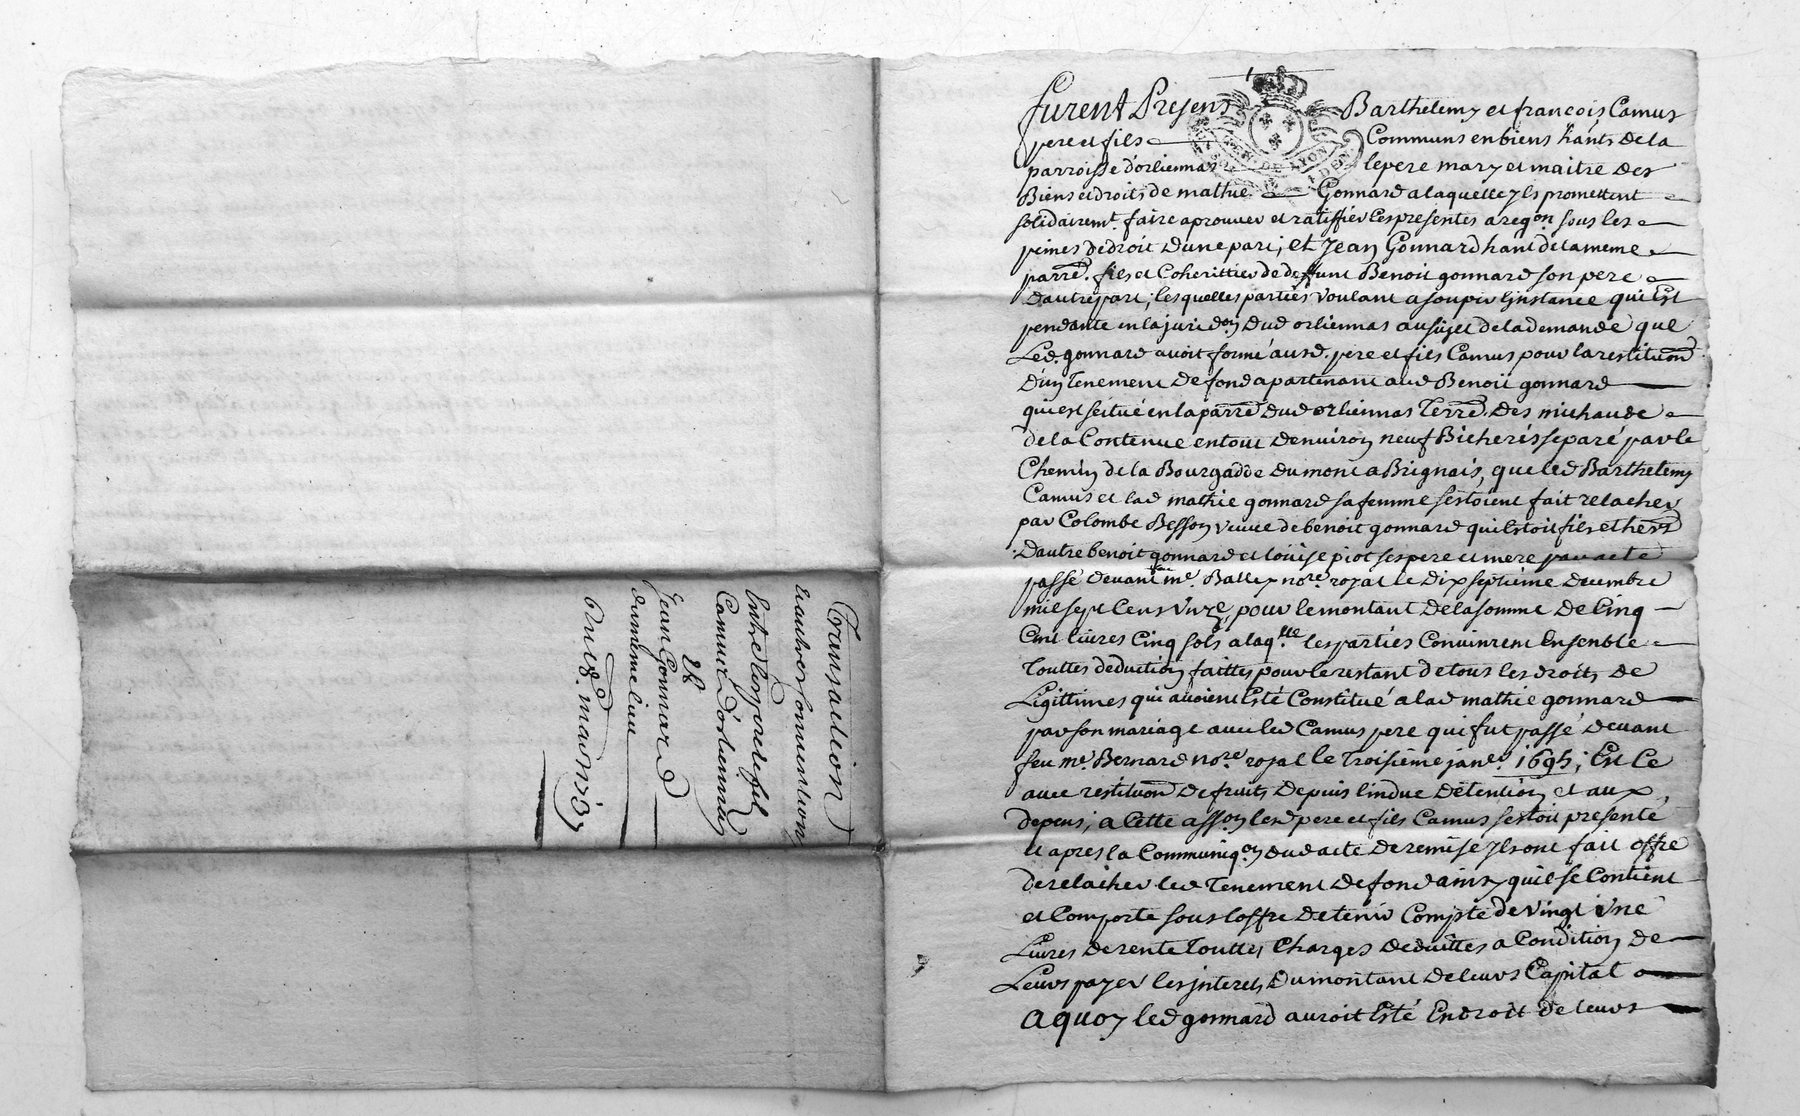 Transaction
et autres Convention
Entre Les pere et fil
Camus D'orliennas
Et
Jean Gonnard
du meme lieu
furent Presens Barthelemy et francois Camus
pere et fils Communs en biens hants de la
parroisse d'orliennas le pere mary et maitre des
Biens et droits de mathie Gonnard a laquelle yls promettent
solidairemt. faire aprouver et ratiffier les presentes a reqon sous les
peines de droit dune part, et Jean Gonnard hant de la meme
parre. fils et Coherittier de deffunt Benoit gonnard son pere
d'autre part; les quelles parties voulant asoupir Linstance qui Est
pendante en la juridon dud orliennas au sujet de la demande que
Led. gonnard avoit formé ausd. pere et fils Camus pour la restituon
d'un Tenement de fond apartenant aud Benoit gonnard
qui est scitué en la parre dud orliennas Terre. des michaude
de la Contenue en tout denviron neuf Bicherés separé par le
Chemin de la Bourgadde du mont a Brignais, que led Barthelemy
Camus et lad mathie gonnard sa femme sestoient fait relacher
par Colombe Besson veuve de benoit gonnard qui Estoit fils et herer
d'autre benoit gonnard et loüise piot ses pere et mere par acte
passé devant me. Balley nore. royal le dix septieme decembre
mil sept Cens Unze, pour le montant de la somme de Cinq
Cent livres Cinq sols a laqlle les parties Convinrent Ensenble
Touttes deduction faittes pour le restant de tous les droits de
Ligittimes qui avoient Esté Constitué a lad mathie gonnard
par son mariage avec led Camus pere qui fut passé devant
feu me. Bernard nore. royal le Troisieme janer. 1695; Et Ce
avec restituon de fruits depuis lindue détention et aux
depens; a Cette asson lesd pere et fils Camus sestoit presenté
et apres la Communiqon dud acte de remise yls ont fait offre
de relacher led Tenement de fond ainsy quil se Contient
et Comporte sous loffre de tenir Compte de vingt une
Livres de rente Touttes Charges deduittes a Condition de
Leurs payer les jnterets du montant de leurs Capital
a quoy led gonnard auroit Esté En droit de leurs